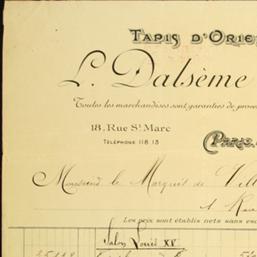 TAPIS D'ORIE
L. Dalsème
Toutes les marchandises sont garanties de prove
18, Rue St Marc
TÉLÉPHONE 118 13
Paris,
Monsieur le Marquis de Vill
Les prix sont établis nets sans es
Salon Louis XV